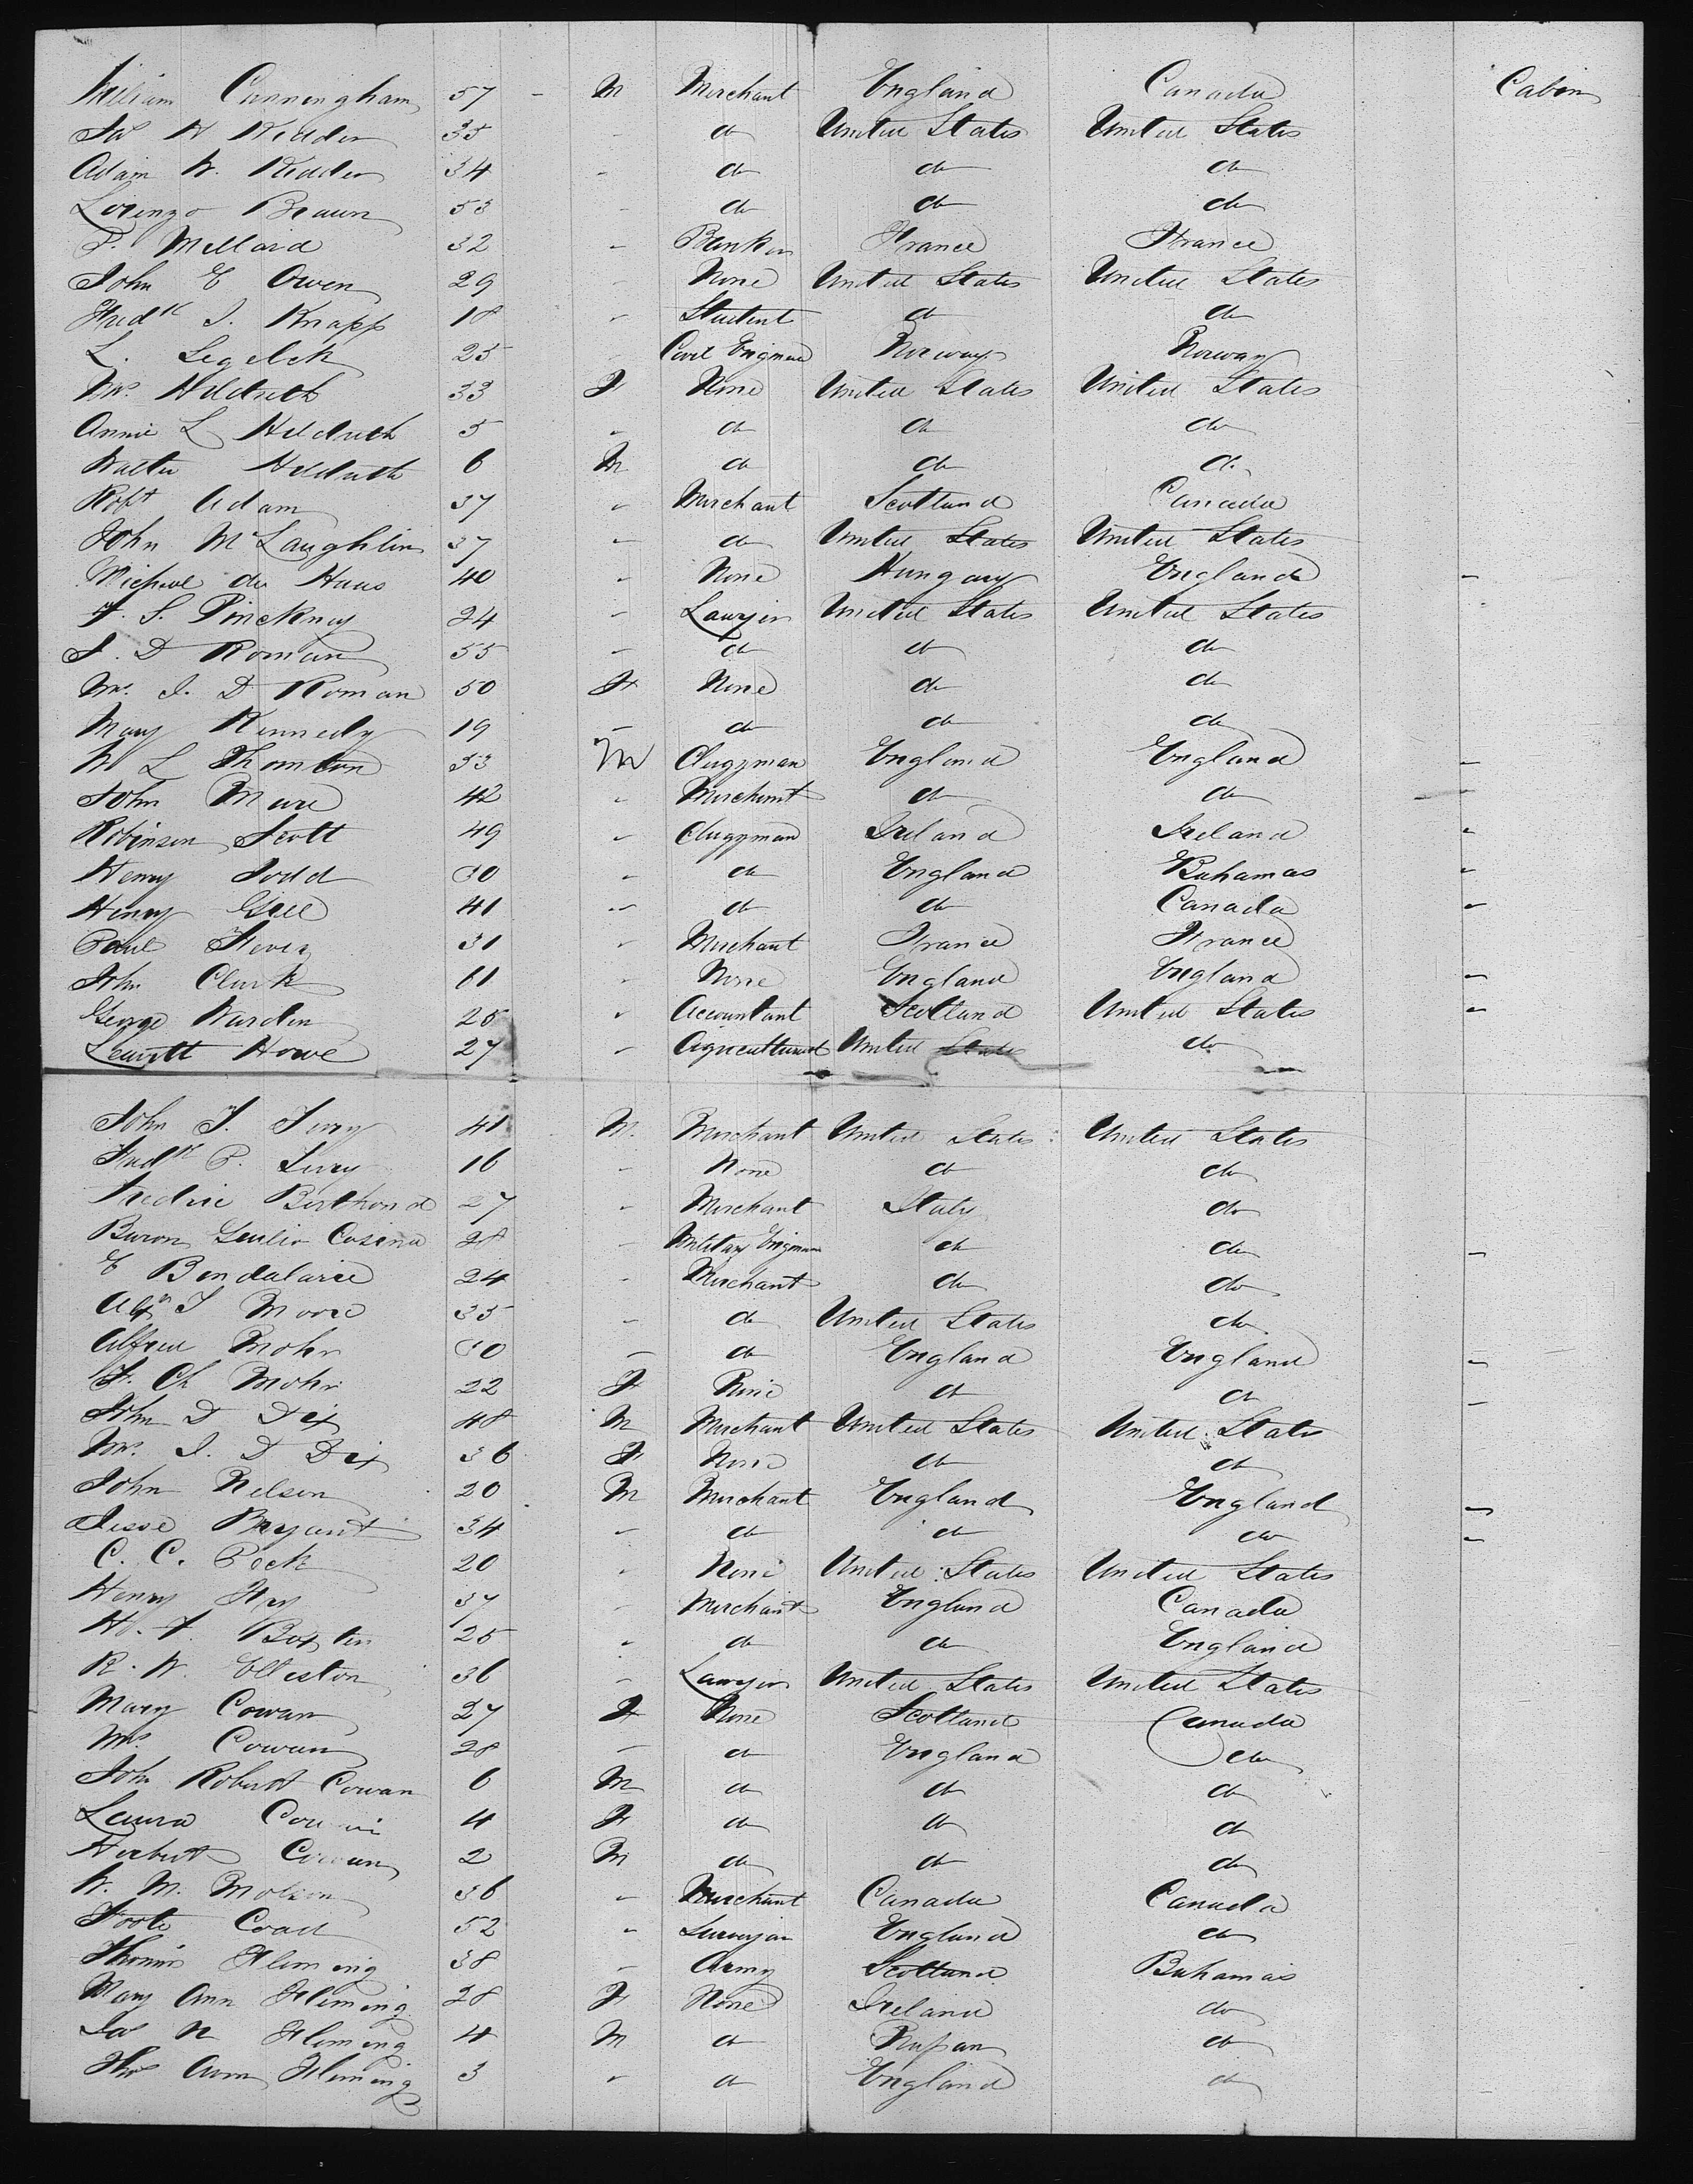 William Cunningham 57 - M Merchant England Canada Cabin
Jas H Kidder 35 " do United States United States
Adam W. Kidder 34 " do do do
Lorenzo Braun 53 " do do do
P. Millard 32 " Banker France France
John E Owen 29 " None United States United States
Fredk J. Knapp 18 " Student do do
L. Segelck 25 " Civil Engineer Norway Norway
Mrs. Hildreth 33 F None United States United States
Annie L Hildreth 5 " do do do
Walter Hildreth 6 M do do do
Robt Adam 37 " Merchant Scotland Canada
John McLaughlin 37 " do United States United States
Michael de Haas 40 " None Hungary England "
F. S. Pinckney 24 " Lawyer United States United States
J. D Roman 55 " do do do
Mrs. J. D Roman 50 F None do do
Mary Kennedy 19 " do do do
W L Thornton 53 M Clergyman England England "
John Mure 42 " Merchant do do "
Robinson Scott 49 " Clergyman Ireland Ireland "
Henry Todd 30 " do England Bahamas "
Henry Gill 41 " do do Canada "
Paul 31 " Merchant France France
John Clark 61 " None England England "
George Warden 25 " Accountant Scotland United States "
Leavitt Howe 27 " Agriculturist United States do
John T. Terry 41 M. Merchant United States United States
Fredk P. Terry 16 " None do do
Berthoud 27 " Merchant Italy do
Baron Giulio Cosena 28 " Military Engineer do do "
E Bendalarie 24 " Merchant do do
Alexr T Moore 35 " do United States do
Alfred Mohr 30 " do England England "
F. Ch Mohr 22 F None do do "
John D Dix 48 M Merchant United States United States
Mrs. J. D Dix 36 F None do do
John Nelson 20 M Merchant England England "
Jesse Bryant 34 " do do do "
C. C. Peck 20 " None United States United States
Henry Fry 37 " Merchant England Canada
H. F. Baxter 25 " do do England
R. W. Elliston 36 " Lawyer United States United States
Mary Cowan 27 F None Scotland Canada
Mrs. Cowan 28 " do England do
John Robert Cowan 6 M do do do
Laura Cowan 4 F do do do
Herbert Cowan 2 M do do do
W. M. Molson 36 " Merchant Canada Canada
Foote Coad 52 " Surveyor England do
Thomas Fleming 38 " Army Scotland Bahamas
Mary Ann Fleming 28 F None Ireland do
Jas N Fleming 4 M do do
Thos Ann Fleming 3 " do England do